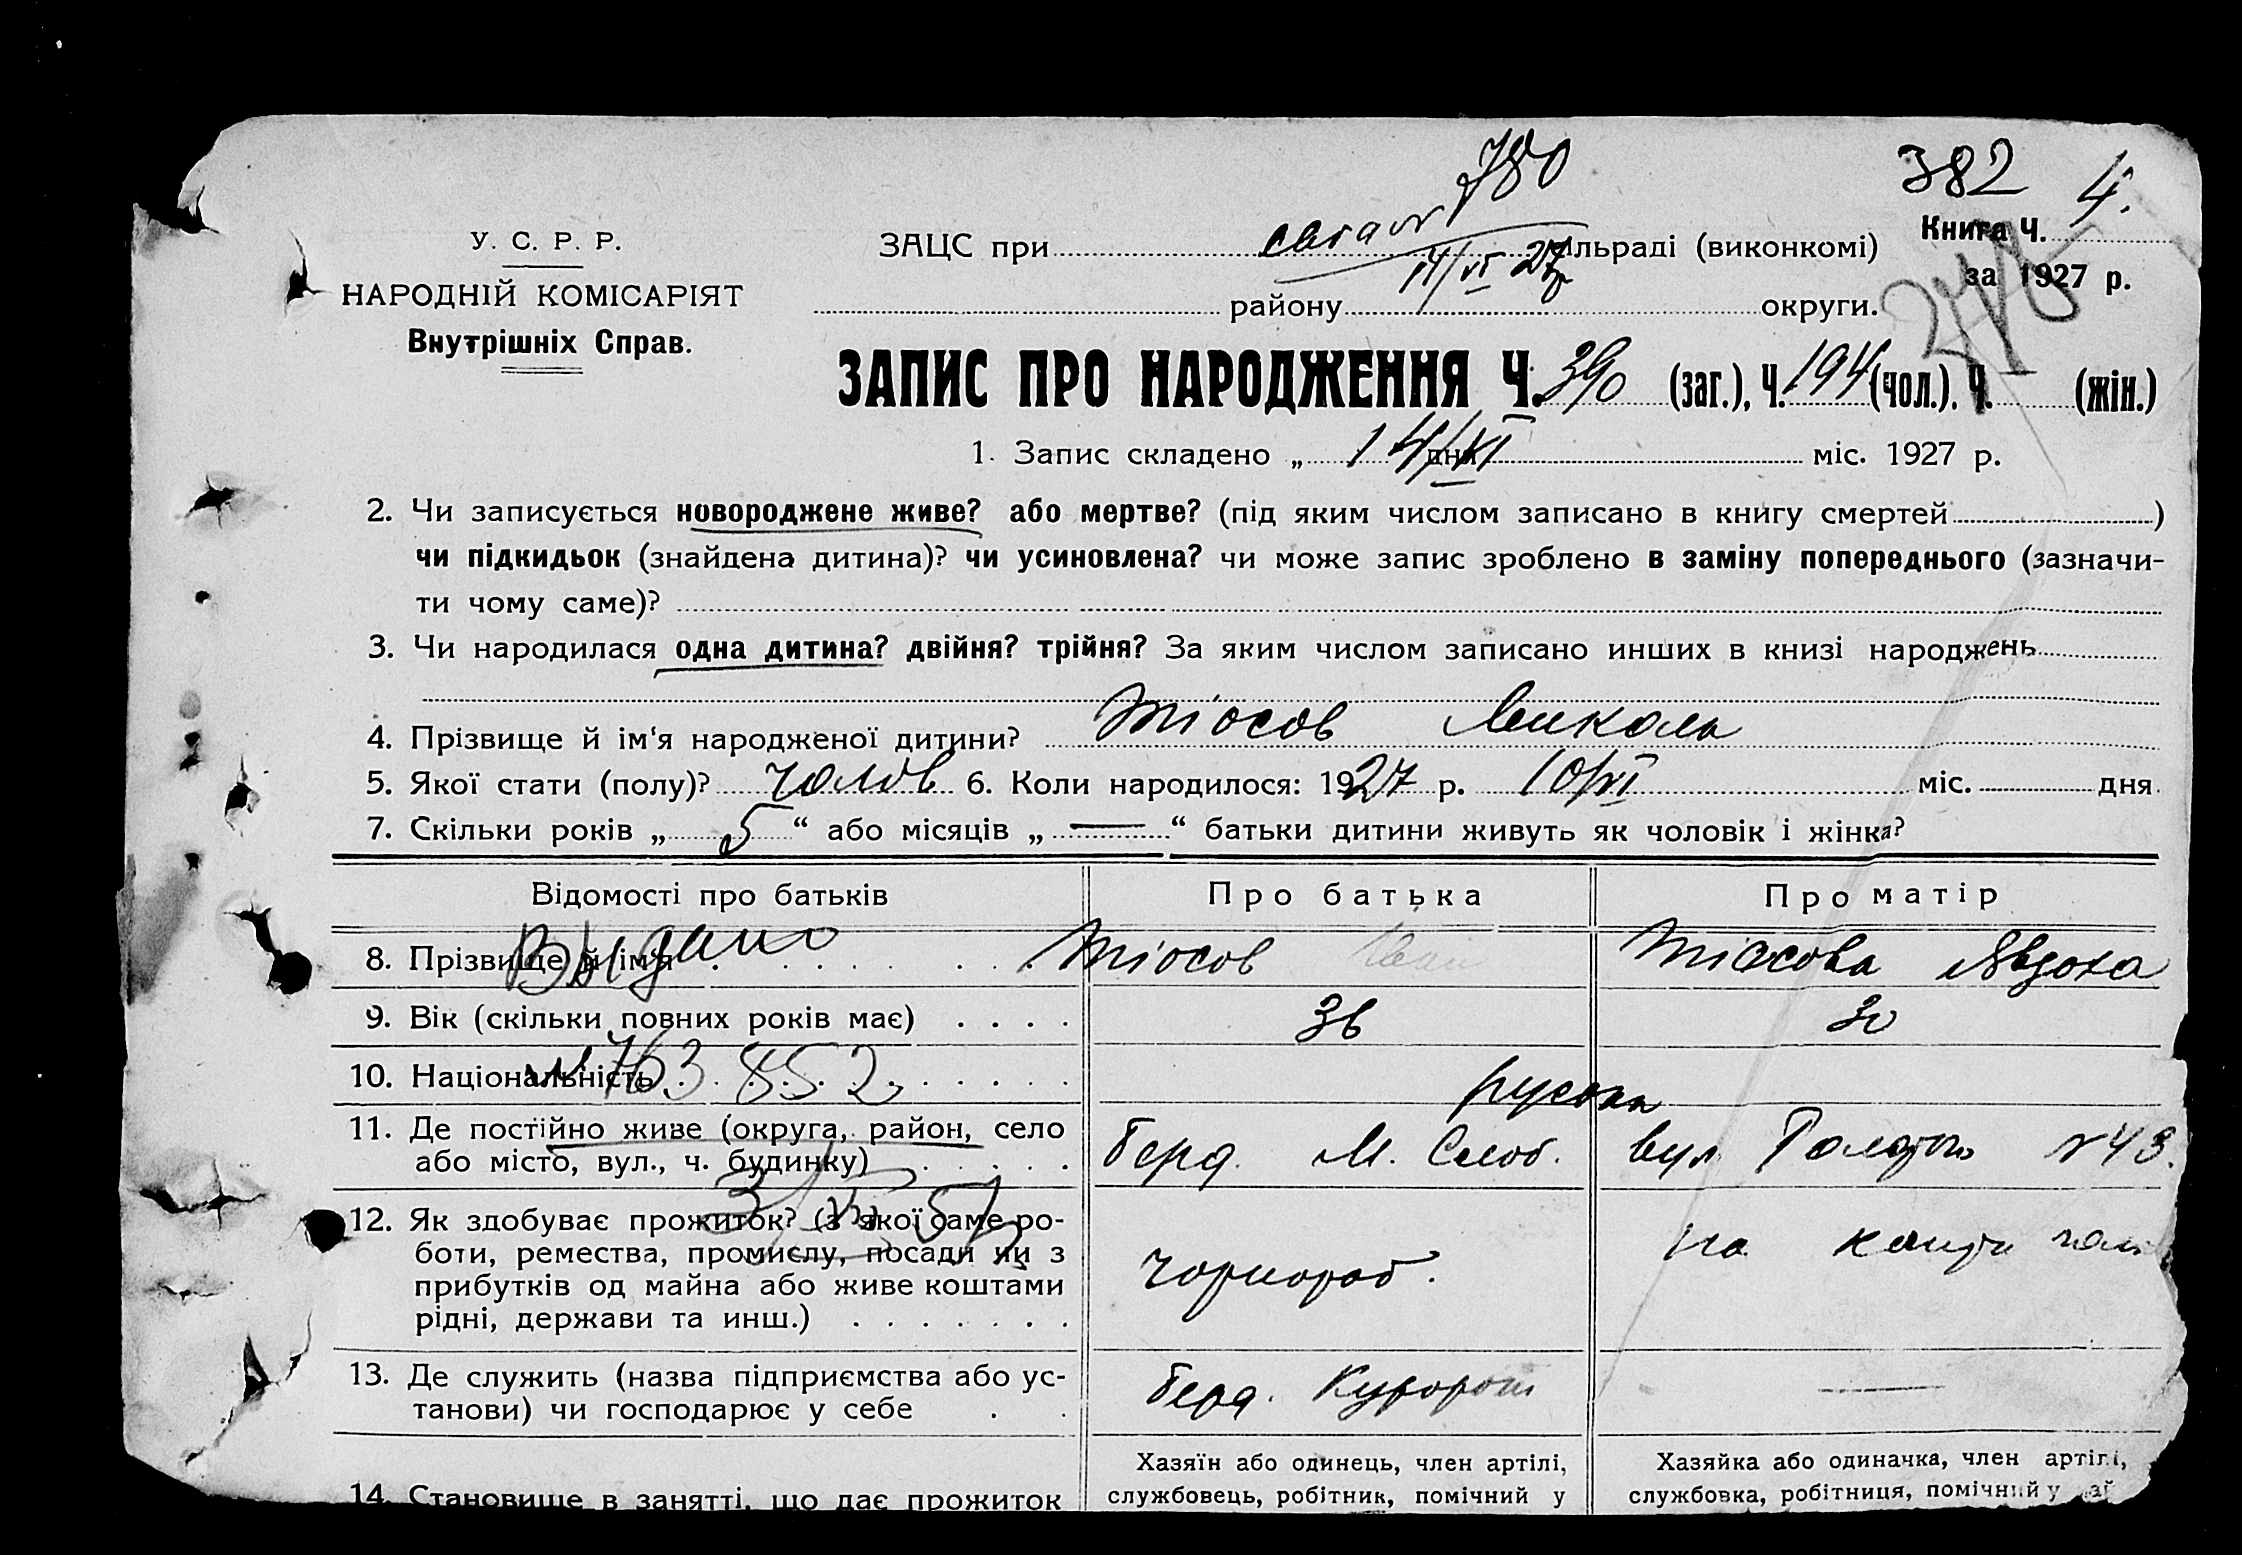 780
382 4.
У. С. Р. Р.
ЗАЦС при сільраді (виконкомі) Книга Ч.
14/VI 27
за 1927 р.
НАРОДНІЙ КОМІСАРІЯТ
району округи.
Внутрішніх Справ.
ЗАПИС ПРО НАРОДЖЕННЯ Ч. 390 (заг.), Ч. 194 (чол.). Ч. (жін.)
1. Запис складено „ 14/VI дня міс. 1927 р.
2. Чи записується новороджене живе? або мертве? (під яким числом записано в книгу смертей )
чи підкидьок (знайдена дитина)? чи усиновлена? чи може запис зроблено в заміну попереднього (зазначи-
ти чому саме)?
3. Чи народилася одна дитина? двійня? трійня? За яким числом записано инших в книзі народжень
4. Прізвище й ім'я народженої дитини? Тіосов Микола
5. Якої стати (полу)? чолов 6. Коли народилося: 1927 р. 10/VI міс. дня
7. Скільки років „ 5 “ або місяців „ — “ батьки дитини живуть як чоловік і жінка?
Відомості про батьків Про батька Про матір
8. Прізвище й ім'я Тіосов Іван Тіосова Явдоха
Выдано
9. Вік (скільки повних років має) 36 30
10. Національність руська
№ 763852
11. Де постійно живе (округа, район, село
або місто, вул., ч. будинку) Берд. М. Слоб. вул. №43.
12. Як здобуває прожиток? (з якої саме ро-
боти, ремества, промислу, посади чи з
прибутків од майна або живе коштами
рідні, держави та инш.) чорнороб. на кошти чол
13. Де служить (назва підприємства або ус-
танови) чи господарює у себе Берд. Курорт —
14. Становище в занятті, що дає прожиток
Хазяїн або одинець, член артілі,
службовець, робітник, помічний у
Хазяйка або одиначка, член артілі,
службовка, робітниця, помічний у